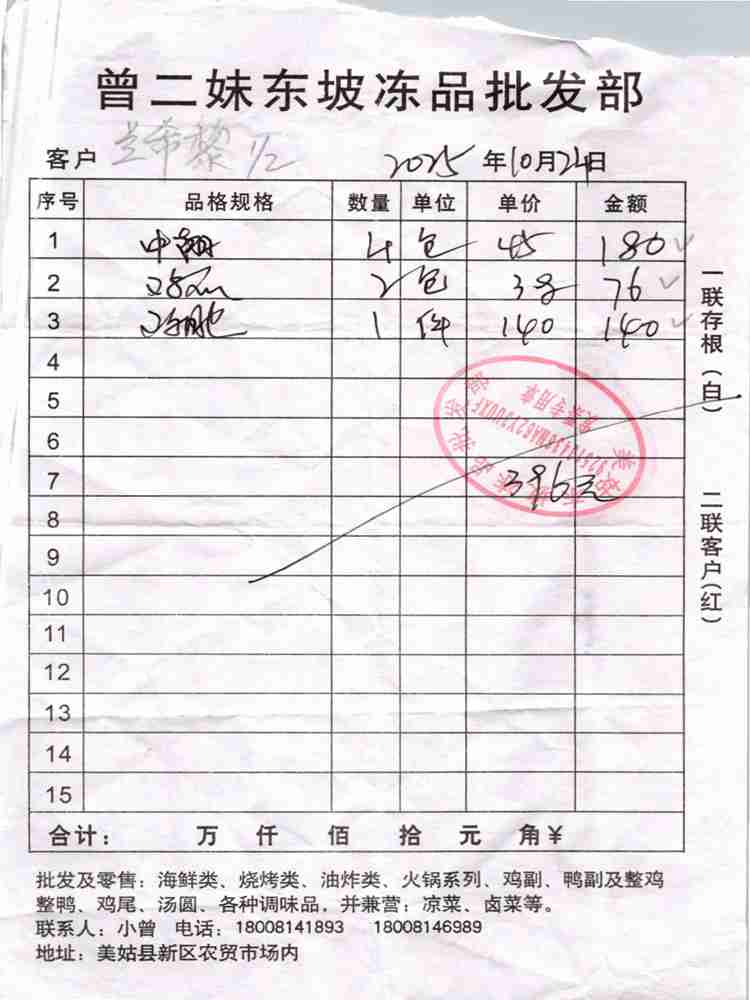 曾二妹东坡冻品批发部
客户 1/2 2025 年10月24日
序号 品格规格 数量 单位 单价 金额
1 中翅 4 包 45 180
2 2 包 38 76
3 1 件 140 140
4
5
6
7 396元
8
9
10
11
12
13
14
15
合计： 万 仟 佰 拾 元 角￥
一联存根（白） 二联客户（红）
发票专用章
批发及零售：海鲜类、烧烤类、油炸类、火锅系列、鸡副、鸭副及整鸡
整鸭、鸡尾、汤圆、各种调味品，并兼营：凉菜、卤菜等。
联系人：小曾 电话：18008141893 18008146989
地址：美姑县新区农贸市场内